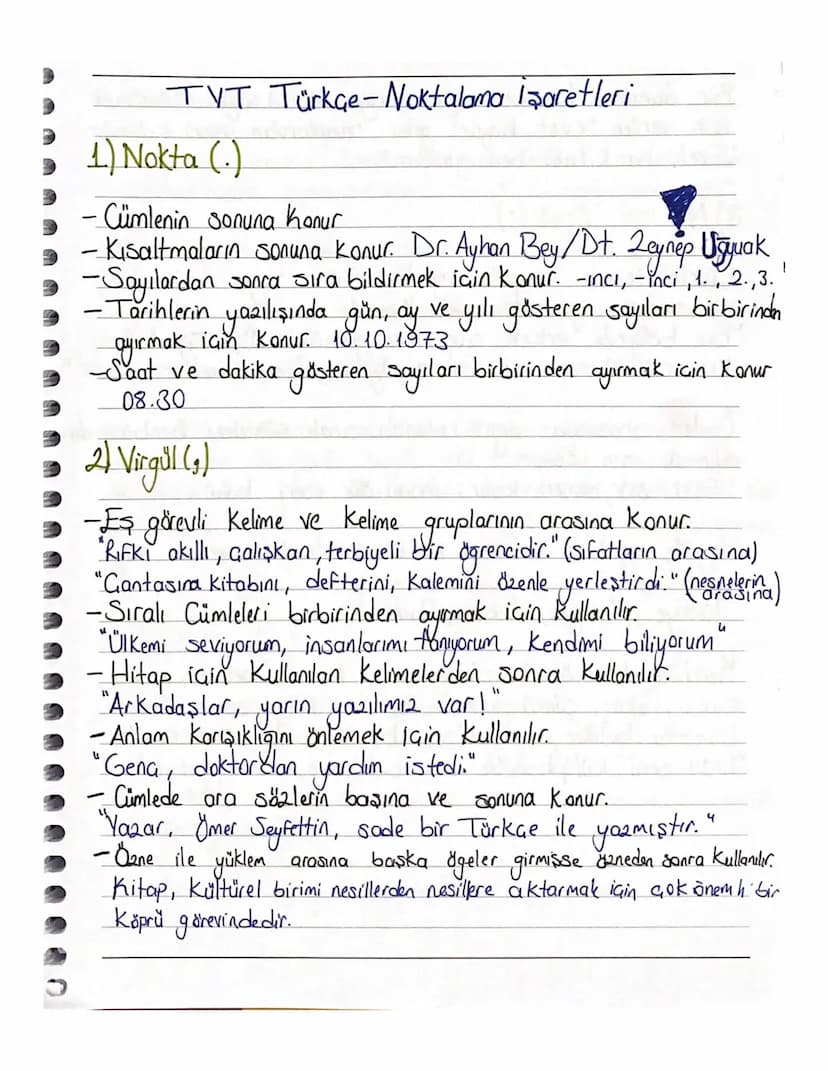 TYT Türkçe - Noktalama İşaretleri
1) Nokta (.)
- Cümlenin sonuna konur
- Kısaltmaların sonuna konur. Dr. Ayhan Bey / Dt. Zeynep Uğyuak
- Sayılardan sonra sıra bildirmek için konur. -ıncı, -inci, 1., 2., 3.
- Tarihlerin yazılışında gün, ay ve yılı gösteren sayıları birbirinden
ayırmak için konur. 10.10.1973
- Saat ve dakika gösteren sayıları birbirinden ayırmak için konur
08.30
2) Virgül (,)
- Eş görevli kelime ve kelime gruplarının arasına konur.
"Rıfkı akıllı, çalışkan, terbiyeli bir öğrencidir." (sıfatların arasına)
"Çantasına kitabını, defterini, kalemini özenle yerleştirdi." (nesnelerin
arasına)
- Sıralı cümleleri birbirinden ayırmak için kullanılır.
"Ülkemi seviyorum, insanlarımı tanıyorum, kendimi biliyorum"
- Hitap için kullanılan kelimelerden sonra kullanılır.
"Arkadaşlar, yarın yazılımız var!"
- Anlam karışıklığını önlemek için kullanılır.
"Genç, doktordan yardım istedi."
- Cümlede ara sözlerin başına ve sonuna konur.
"Yazar, Ömer Seyfettin, sade bir Türkçe ile yazmıştır."
- Özne ile yüklem arasına başka ögeler girmişse özneden sonra kullanılır.
Kitap, kültürel birimi nesillerden nesillere aktarmak için çok önemli bir
köprü görevindedir.